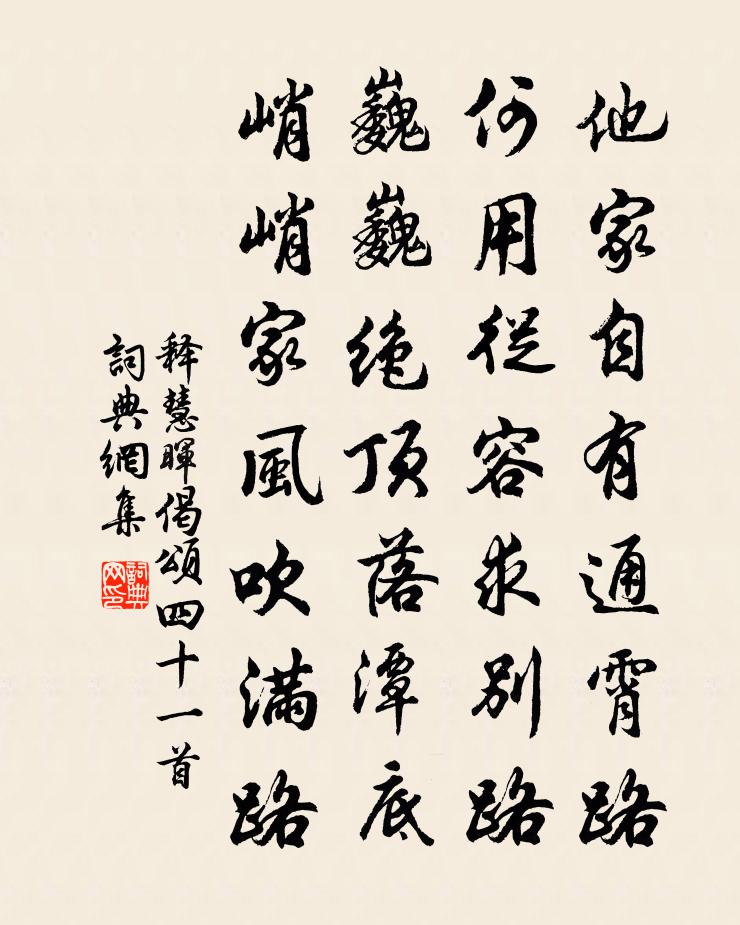 他家自有通霄路
何用從容求別路
巍巍絶頂落潭底
峭峭家風吹滿路
释慧暉偈頌四十一首
詞典網集
詞典网印